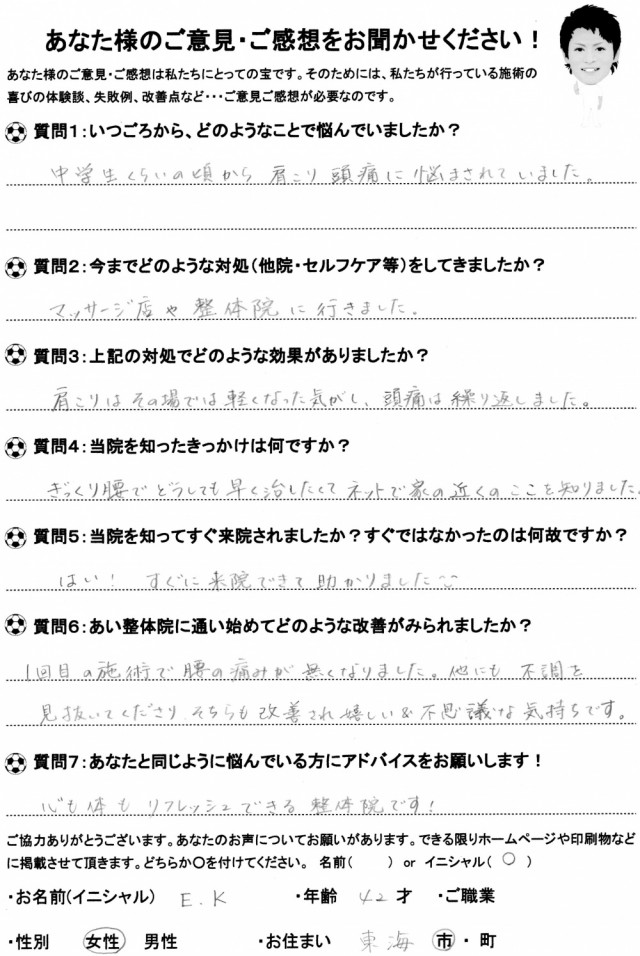 あなた様のご意見・ご感想をお聞かせください！
あなた様のご意見・ご感想は私たちにとっての宝です。そのためには、私たちが行っている施術の
喜びの体験談、失敗例、改善点など・・・ご意見ご感想が必要なのです。
質問1：いつごろから、どのようなことで悩んでいましたか？
中学生くらいの頃から 肩こり 頭痛に悩まされていました。
質問2：今までどのような対処（他院・セルフケア等）をしてきましたか？
マッサージ店や整体院に行きました。
質問3：上記の対処でどのような効果がありましたか？
肩こりはその場では軽くなった気がし、頭痛は繰り返しました。
質問4：当院を知ったきっかけは何ですか？
ぎっくり腰でどうしても早く治したくてネットで家の近くのここを知りました。
質問5：当院を知ってすぐ来院されましたか？すぐではなかったのは何故ですか？
はい！ すぐに来院できて助かりました
質問6：あい整体院に通い始めてどのような改善がみられましたか？
1回目の施術で腰の痛みが無くなりました。他にも不調を
見抜いてくださりそちらも改善され嬉しい&不思議な気持ちです。
質問7：あなたと同じように悩んでいる方にアドバイスをお願いします！
心も体もリフレッシュできる整体院です！
ご協力ありがとうございます。あなたのお声についてお願いがあります。できる限りホームページや印刷物など
に掲載させて頂きます。どちらか○を付けてください。 名前（ ） or イニシャル（ ○ ）
・お名前（イニシャル） E.K ・年齢 42 才 ・ご職業
・性別 女性 男性 ・お住まい 東海 市・町